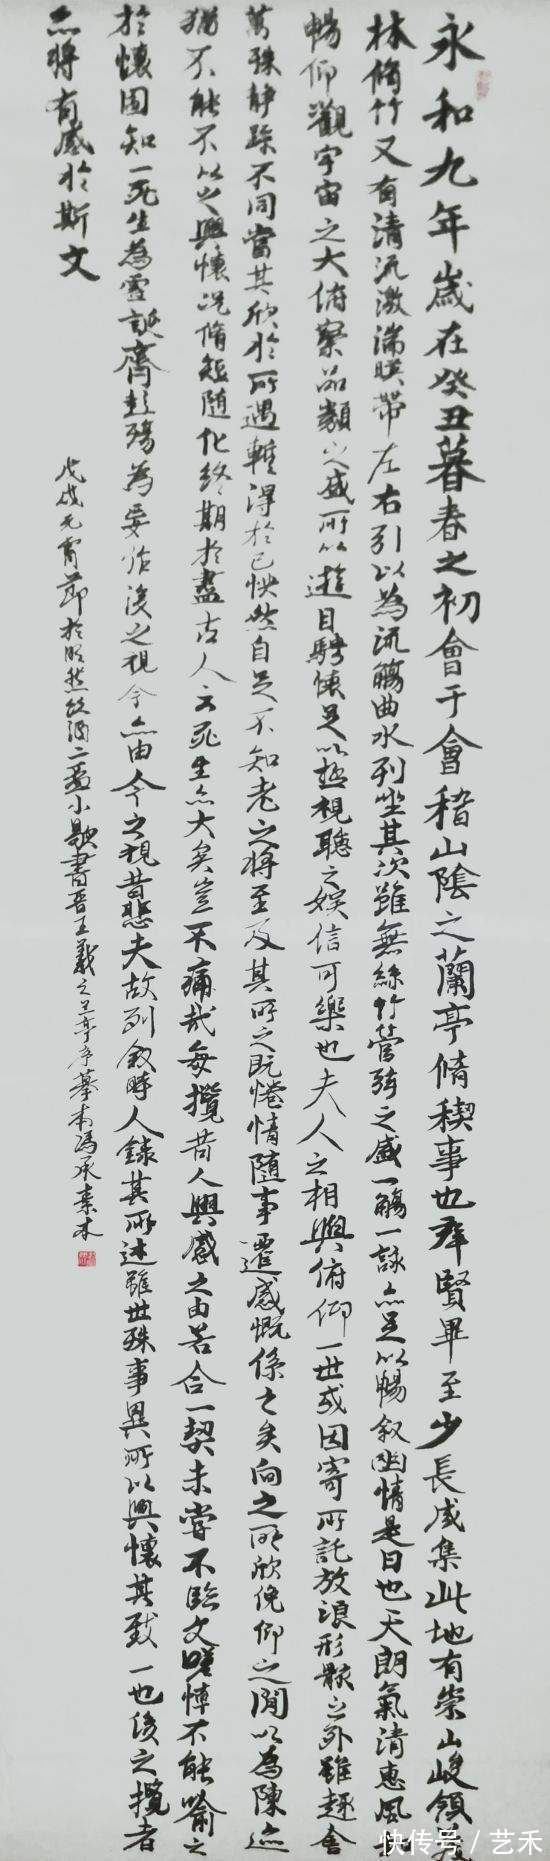 永和九年歲在癸丑暮春之初會于會稽山陰之蘭亭脩稧事也群賢畢至少長咸集此地有崇山峻領茂
林脩竹又有清流激湍暎帶左右引以為流觴曲水列坐其次雖無絲竹管弦之盛一觴一詠亦足以暢叙幽情是日也天朗氣清惠風和
暢仰觀宇宙之大俯察品類之盛所以遊目騁懷足以極視聽之娛信可樂也夫人之相與俯仰一世或因寄所託放浪形骸之外雖趣舍
萬殊靜躁不同當其欣於所遇蹔得於己怏然自足不知老之將至及其所之既惓情隨事遷感慨係之矣向之所欣俛仰之間以為陳迹
猶不能不以之興懷況脩短隨化終期於盡古人云死生亦大矣豈不痛哉每攬昔人興感之由若合一契未嘗不臨文嗟悼不能喻之
於懷固知一死生為虛誕齊彭殤為妄作後之視今亦由今之視昔悲夫故列叙時人錄其所述雖世殊事異所以興懷其致一也後之攬者
亦將有感於斯文
戊戌元宵節於 酒二 小歇書晉王羲之 亭序摹 馮承素本
快传号／艺禾